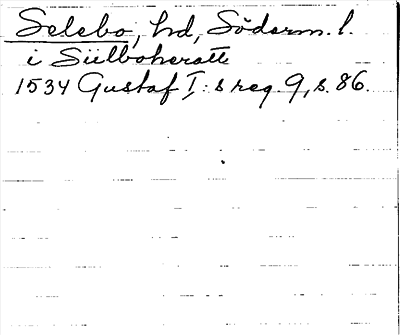 Selebo, hd, Söderm. l.
i Siilboheratt
1534 Gustaf I:s reg. 9, s. 86.